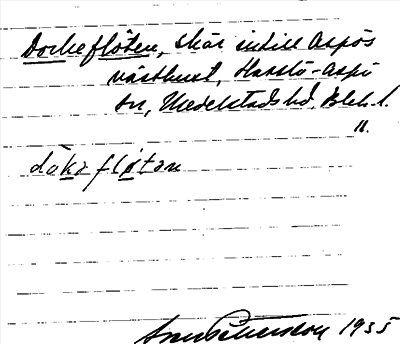 Dockeflöten, skär intill Aspös
västkust, Hasslö-Aspö
sn, Medelstads hd, Blek. l.
11.
dåkəfløtən
1935